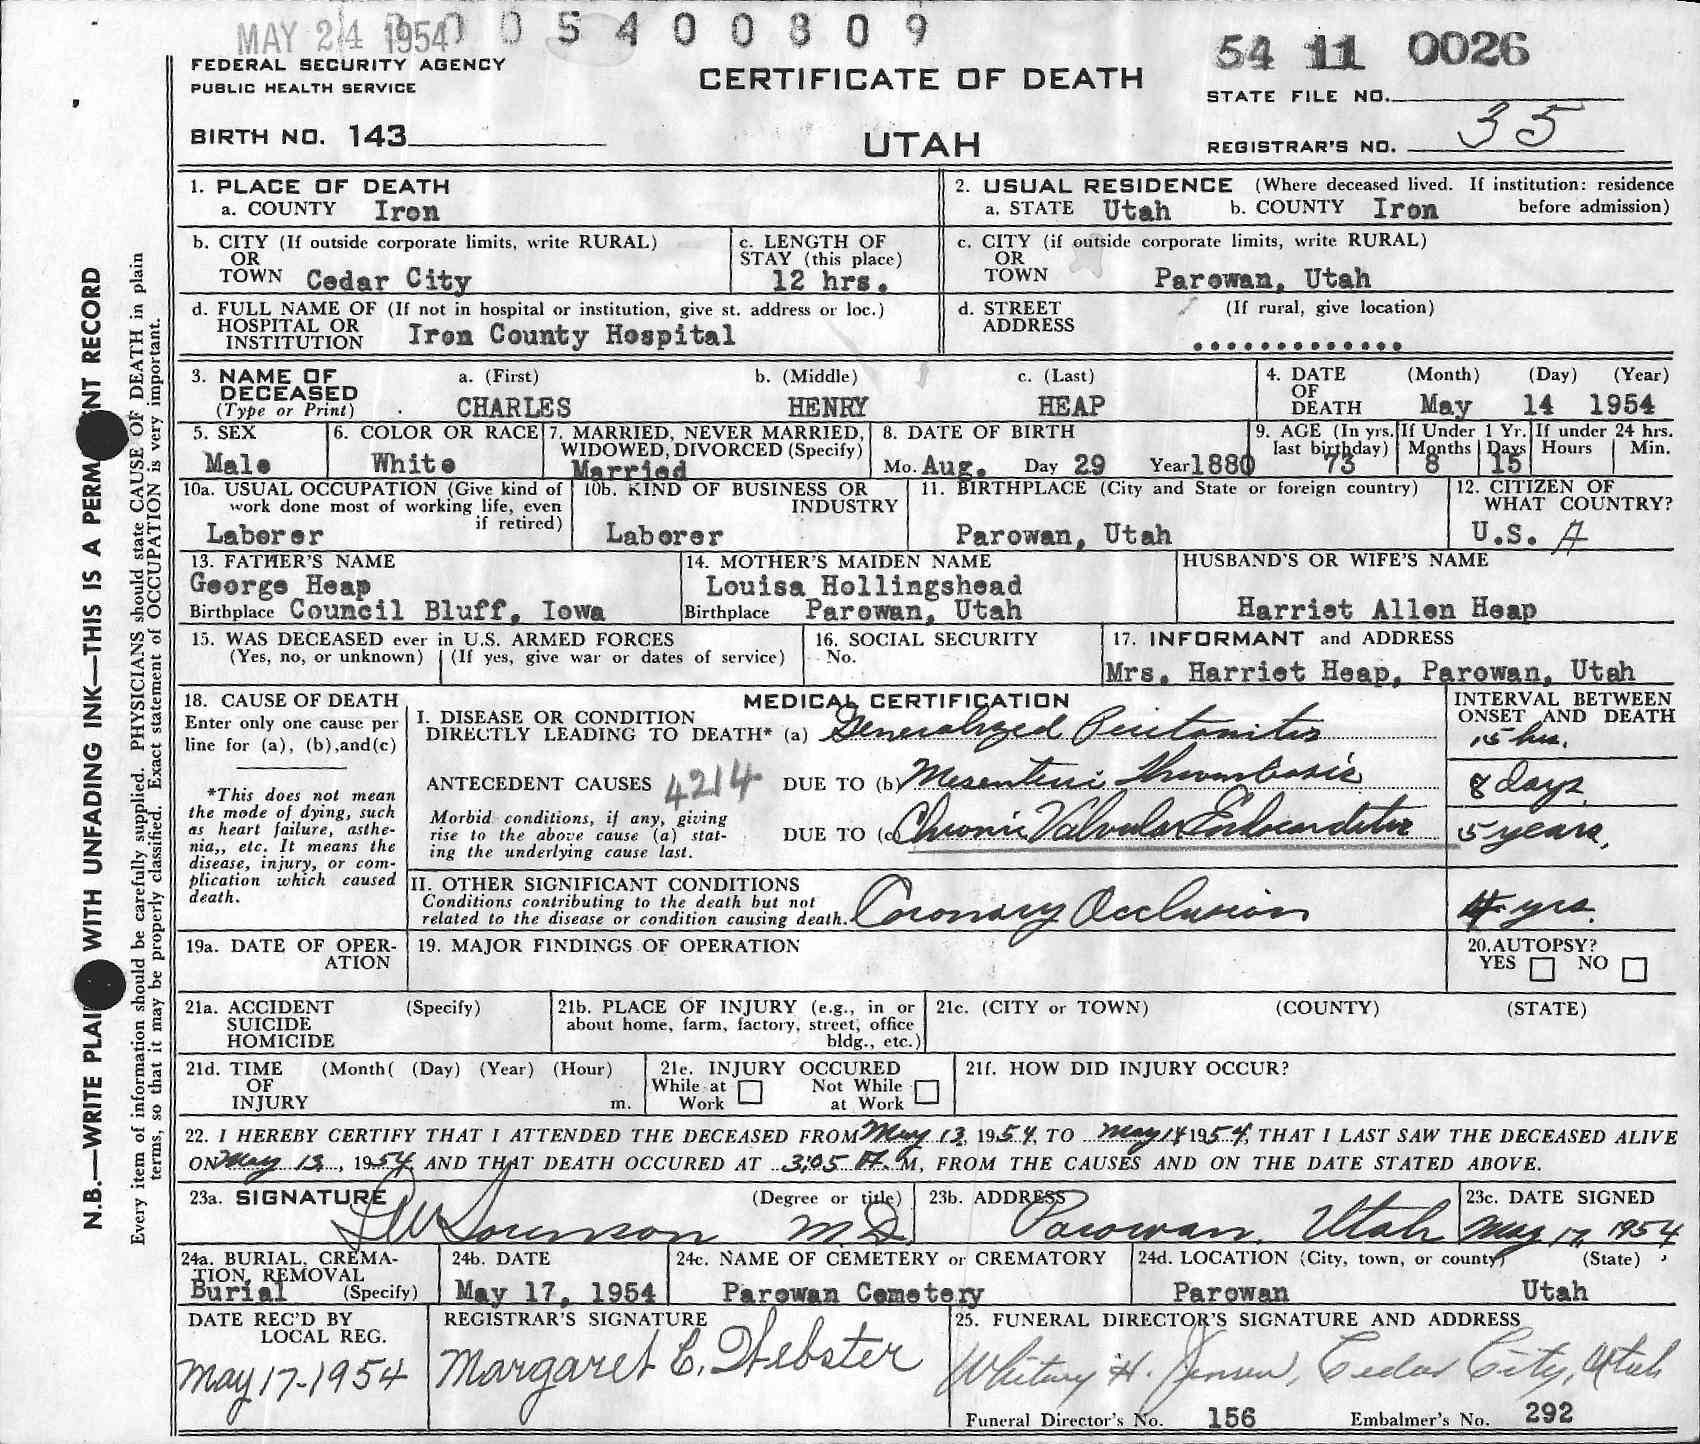 MAY 24 1954 0 0 5 4 0 0 8 0 9
54 11 0026
FEDERAL SECURITY AGENCY
PUBLIC HEALTH SERVICE
CERTIFICATE OF DEATH
STATE FILE NO.
BIRTH NO. 143
UTAH
REGISTRAR'S NO. 35
1. PLACE OF DEATH
a. COUNTY Iron
2. USUAL RESIDENCE (Where deceased lived. If institution: residence
a. STATE Utah b. COUNTY Iron before admission)
b. CITY (If outside corporate limits, write RURAL)
OR
TOWN Cedar City
c. LENGTH OF
STAY (this place)
12 hrs.
c. CITY (if outside corporate limits, write RURAL)
OR
TOWN Parowan, Utah
d. FULL NAME OF (If not in hospital or institution, give st. address or loc.)
HOSPITAL OR
INSTITUTION Iron County Hospital
d. STREET (If rural, give location)
ADDRESS
.............
3. NAME OF
DECEASED
(Type or Print)
a. (First) b. (Middle) c. (Last)
CHARLES HENRY HEAP
4. DATE (Month) (Day) (Year)
OF
DEATH May 14 1954
5. SEX
Male
6. COLOR OR RACE
White
7. MARRIED, NEVER MARRIED,
WIDOWED, DIVORCED (Specify)
Married
8. DATE OF BIRTH
Mo. Aug. Day 29 Year 1880
9. AGE (In yrs.
last birthday)
73
If Under 1 Yr.
Months Days
8 15
If under 24 hrs.
Hours Min.
10a. USUAL OCCUPATION (Give kind of
work done most of working life, even
if retired)
Laborer
10b. KIND OF BUSINESS OR
INDUSTRY
Laborer
11. BIRTHPLACE (City and State or foreign country)
Parowan, Utah
12. CITIZEN OF
WHAT COUNTRY?
U.S. A
13. FATHER'S NAME
George Heap
Birthplace Council Bluff, Iowa
14. MOTHER'S MAIDEN NAME
Louisa Hollingshead
Birthplace Parowan, Utah
HUSBAND'S OR WIFE'S NAME
Harriet Allen Heap
15. WAS DECEASED ever in U.S. ARMED FORCES
(Yes, no, or unknown) (If yes, give war or dates of service)
16. SOCIAL SECURITY
No.
17. INFORMANT and ADDRESS
Mrs. Harriet Heap, Parowan, Utah
18. CAUSE OF DEATH
Enter only one cause per
line for (a), (b), and (c)
*This does not mean
the mode of dying, such
as heart failure, asthe-
nia,, etc. It means the
disease, injury, or com-
plication which caused
death.
MEDICAL CERTIFICATION
I. DISEASE OR CONDITION
DIRECTLY LEADING TO DEATH* (a) Generalized Peritonitis
ANTECEDENT CAUSES 4214 DUE TO (b) Mesenteric Thrombosis
Morbid conditions, if any, giving
rise to the above cause (a) stat-
ing the underlying cause last.
DUE TO (c) Chronic Valvular Endocarditis
INTERVAL BETWEEN
ONSET AND DEATH
15 hrs.
8 days
5 years,
II. OTHER SIGNIFICANT CONDITIONS
Conditions contributing to the death but not
related to the disease or condition causing death. Coronary Occlusion
4 yrs.
19a. DATE OF OPER-
ATION
19. MAJOR FINDINGS OF OPERATION
20. AUTOPSY?
YES NO
21a. ACCIDENT (Specify)
SUICIDE
HOMICIDE
21b. PLACE OF INJURY (e.g., in or
about home, farm, factory, street, office
bldg., etc.)
21c. (CITY or TOWN) (COUNTY) (STATE)
21d. TIME (Month( (Day) (Year) (Hour)
OF
INJURY m.
21e. INJURY OCCURED
While at Work Not While at Work
21f. HOW DID INJURY OCCUR?
22. I HEREBY CERTIFY THAT I ATTENDED THE DECEASED FROM May 13, 1954, TO May 14 1954, THAT I LAST SAW THE DECEASED ALIVE
ON May 13, 1954, AND THAT DEATH OCCURED AT 3:05 A. M, FROM THE CAUSES AND ON THE DATE STATED ABOVE.
23a. SIGNATURE (Degree or title)
Sorenson M.D.
23b. ADDRESS
Parowan, Utah
23c. DATE SIGNED
May 17, 1954
24a. BURIAL, CREMA-
TION, REMOVAL
Burial (Specify)
24b. DATE
May 17, 1954
24c. NAME OF CEMETERY or CREMATORY
Parowan Cemetery
24d. LOCATION (City, town, or county) (State)
Parowan Utah
DATE REC'D BY
LOCAL REG.
May 17-1954
REGISTRAR'S SIGNATURE
Margaret E. Webster
25. FUNERAL DIRECTOR'S SIGNATURE AND ADDRESS
Whitney H. Jensen, Cedar City, Utah
Funeral Director's No. 156 Embalmer's No. 292
N.B.—WRITE PLAI WITH UNFADING INK—THIS IS A PERM NT RECORD
Every item of information should be carefully supplied. PHYSICIANS should state CAUSE OF DEATH in plain
terms, so that it may be properly classified. Exact statement of OCCUPATION is very important.